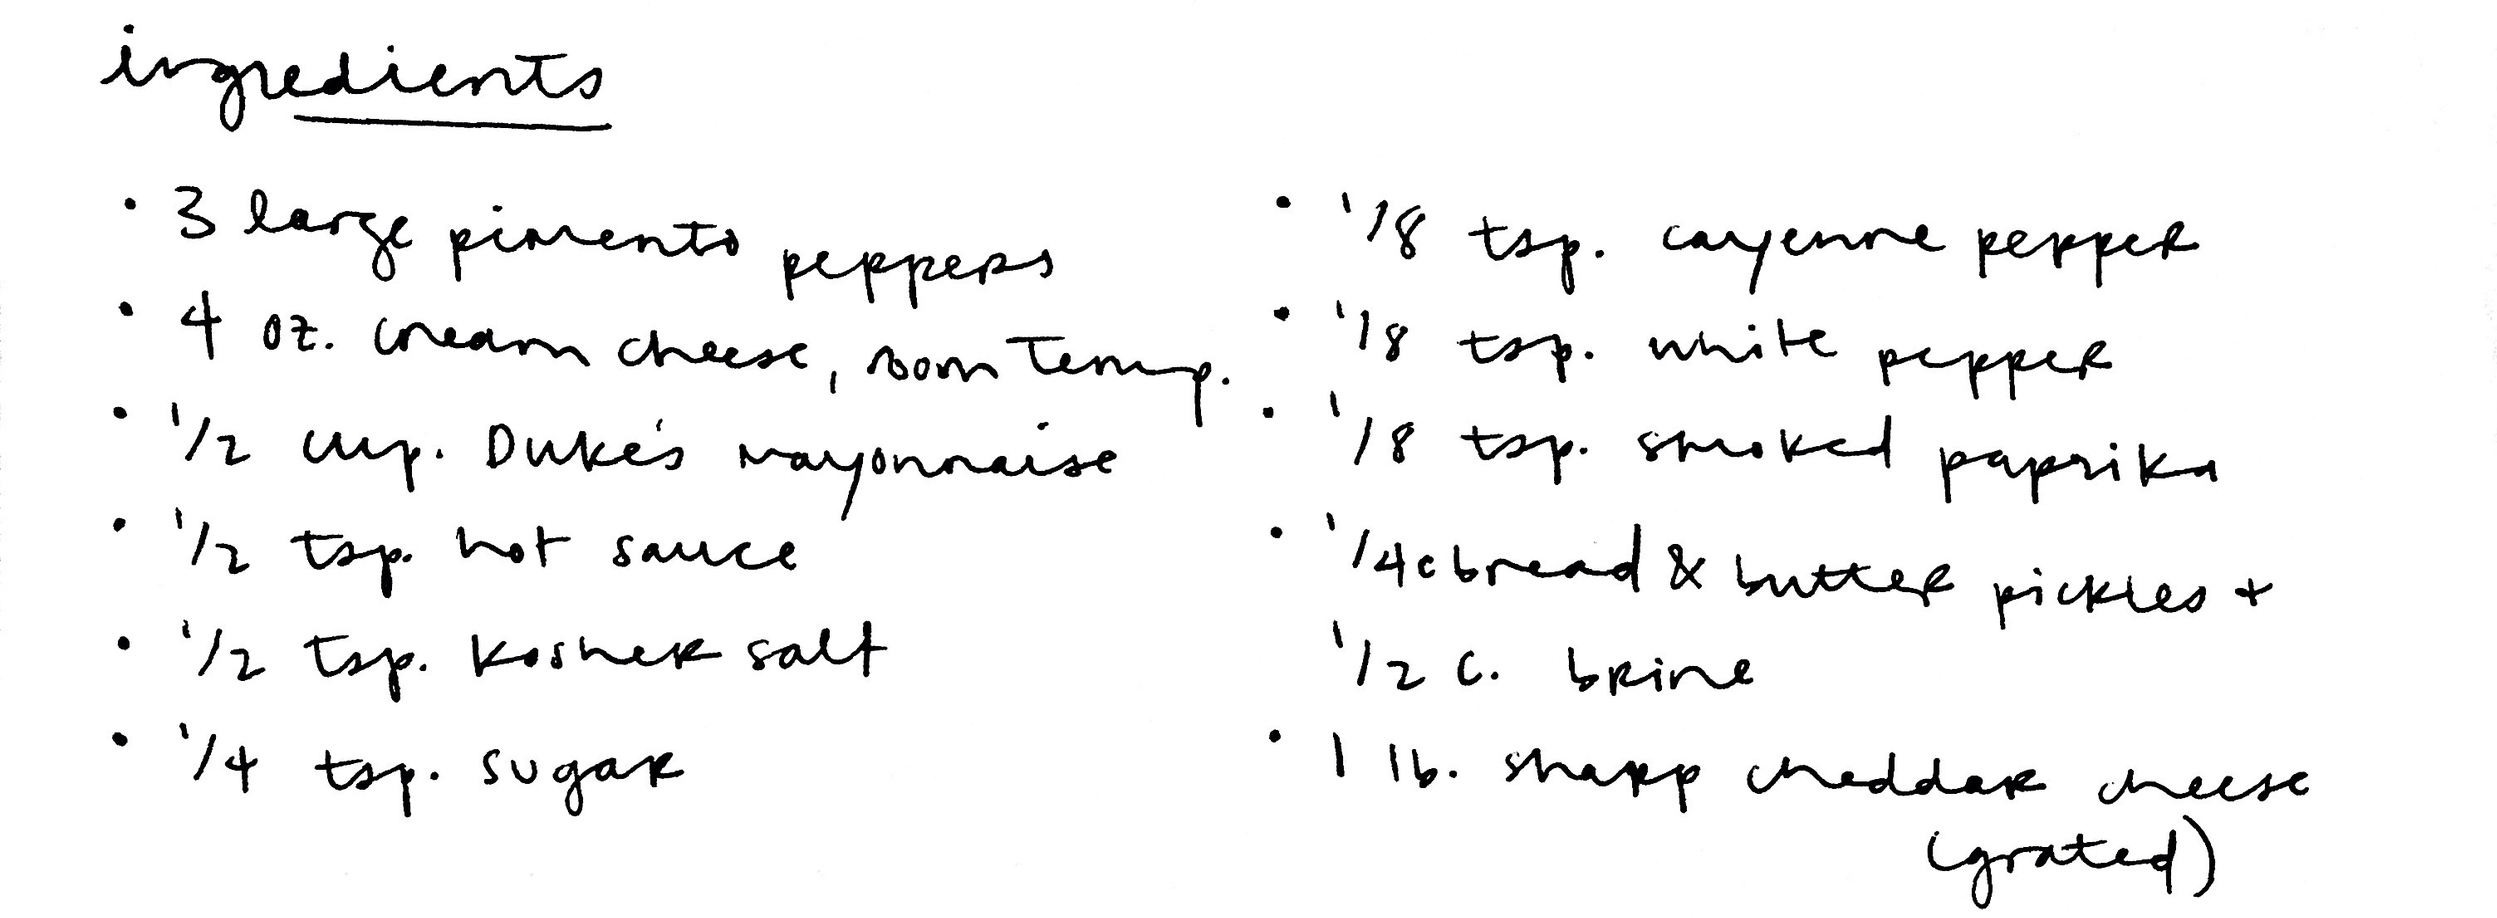 ingredients
· 3 large pimento peppers
· 4 oz. cream cheese, room temp.
· 1/2 cup. Duke's mayonnaise
· 1/2 tsp. hot sauce
· 1/2 tsp. kosher salt
· 1/4 tsp. sugar
· 1/8 tsp. cayenne pepper
· 1/8 tsp. white pepper
· 1/8 tsp. smoked paprika
· 1/4c bread & butter pickles +
1/2 c. brine
· 1 lb. sharp cheddar cheese
(grated)